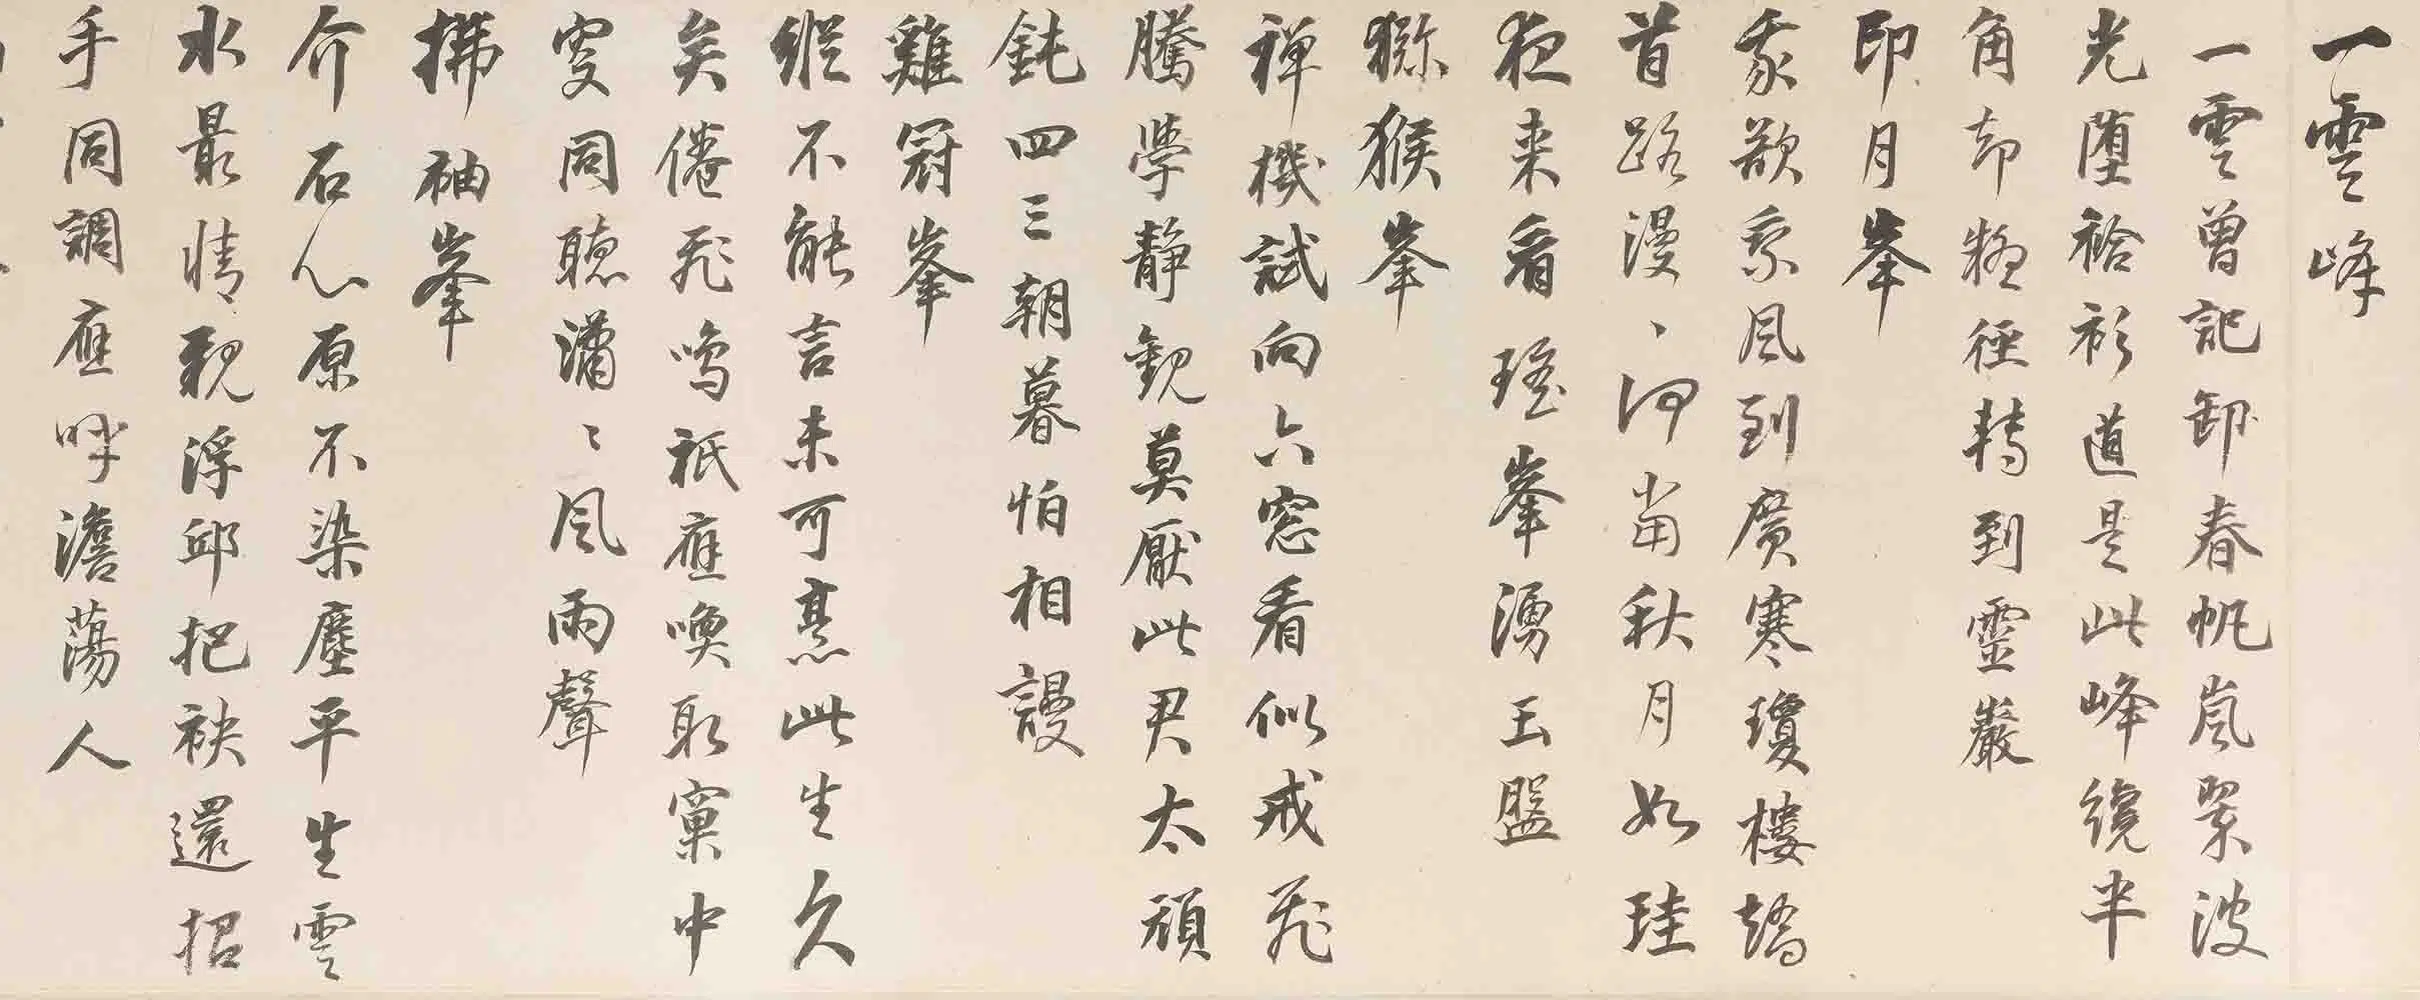 一雲峰
一雲曾記卸春帆嵐翠波
光墮袷衫道是此峰纔半
角却糚徑轉到靈巖
即月峯
我欲乘風到廣寒瓊樓矯
首路漫漫何當秋月如珪
夜来看瑤峯湧玉盤
獼猴峯
禅機試向六窓看似戒飛
騰學靜觀莫厭此君太頑
鈍四三朝暮怕相謾
雞冠峯
縱不能言未可憙此生久
矣倦飛鳴祇應喚取窠中
叟同聽瀟瀟風雨聲
拂袖峯
介石心原不染塵平生雲
水最情親浮邱把袂還招
手同調應呼澹蕩人